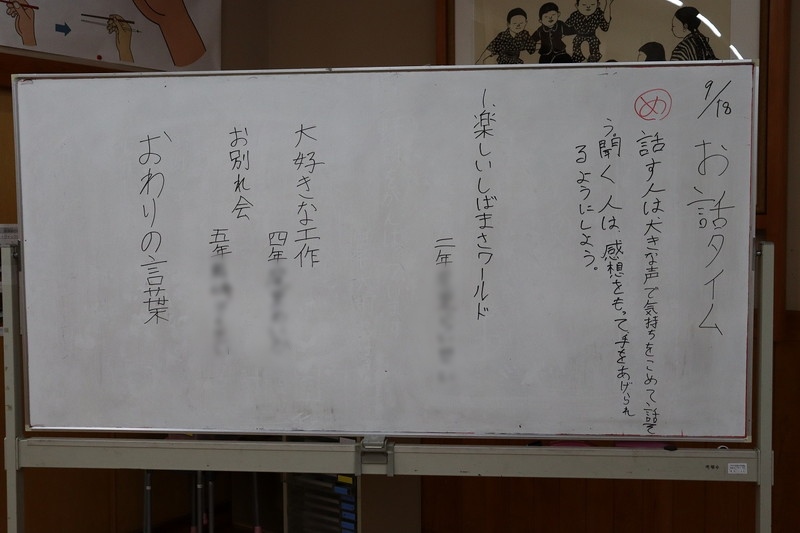 9/18
お話タイム
め 話す人は大きな声で気持ちをこめて話そ
う。聞く人は、感想をもって、手をあげられ
るようにしよう。
1、楽しいしばまさワールド
二年
大好きな工作
四年
お別れ会
五年
おわりの言葉